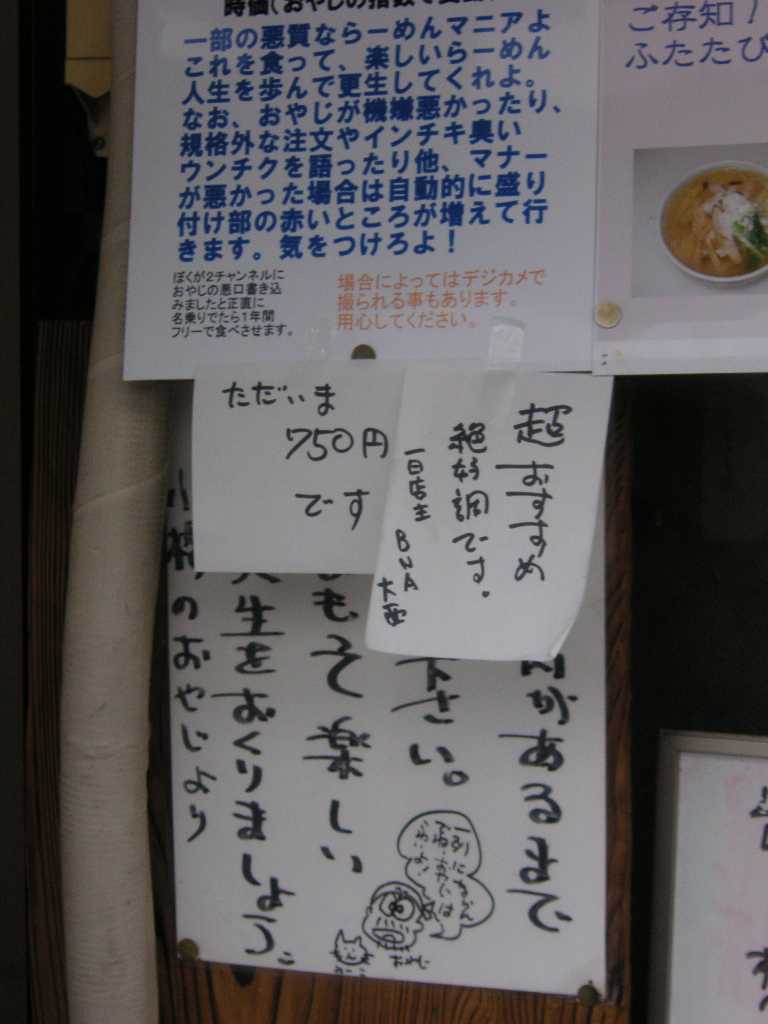 時価(おやじの指数で
一部の悪質ならーめんマニアよ
これを食って、楽しいらーめん
人生を歩んで更生してくれよ。
なお、おやじが機嫌悪かったり、
規格外な注文やインチキ臭い
ウンチクを語ったり他、マナー
が悪かった場合は自動的に盛り
付け部の赤いところが増えて行
きます。気をつけろよ！
ぼくが2チャンネルに
おやじの悪口書き込
みましたと正直に
名乗りでたら1年間
フリーで食べさせます。
場合によってはデジカメで
撮られる事もあります。
用心してください。
ご存知！
ふたたび
ただいま
750円
です
超おすすめ
絶好調です。
一日店主 BNA
があるまで
下さい。
もって楽しい
人生をおくりましょう。
のおやじより